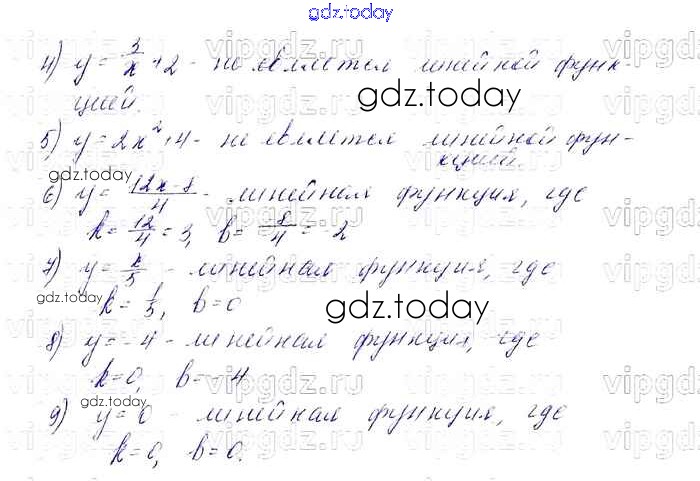 gdz.today
4) y = 3/x + 2 - не является линейной функ-
цией.
gdz.today
5) y = 2x² + 4 - не является линейной фун-
кцией.
6) y = (12x-8)/4 - линейная функция, где
k = 12/4 = 3, b = -8/4 = -2
7) y = x/5 - линейная функция, где
k = 1/5, b = 0
gdz.today
gdz.today
8) y = -4 - линейная функция, где
k=0, b=-4
gdz.today
9) y = 0 - линейная функция, где
k=0, b=0.
vipgdz.ru